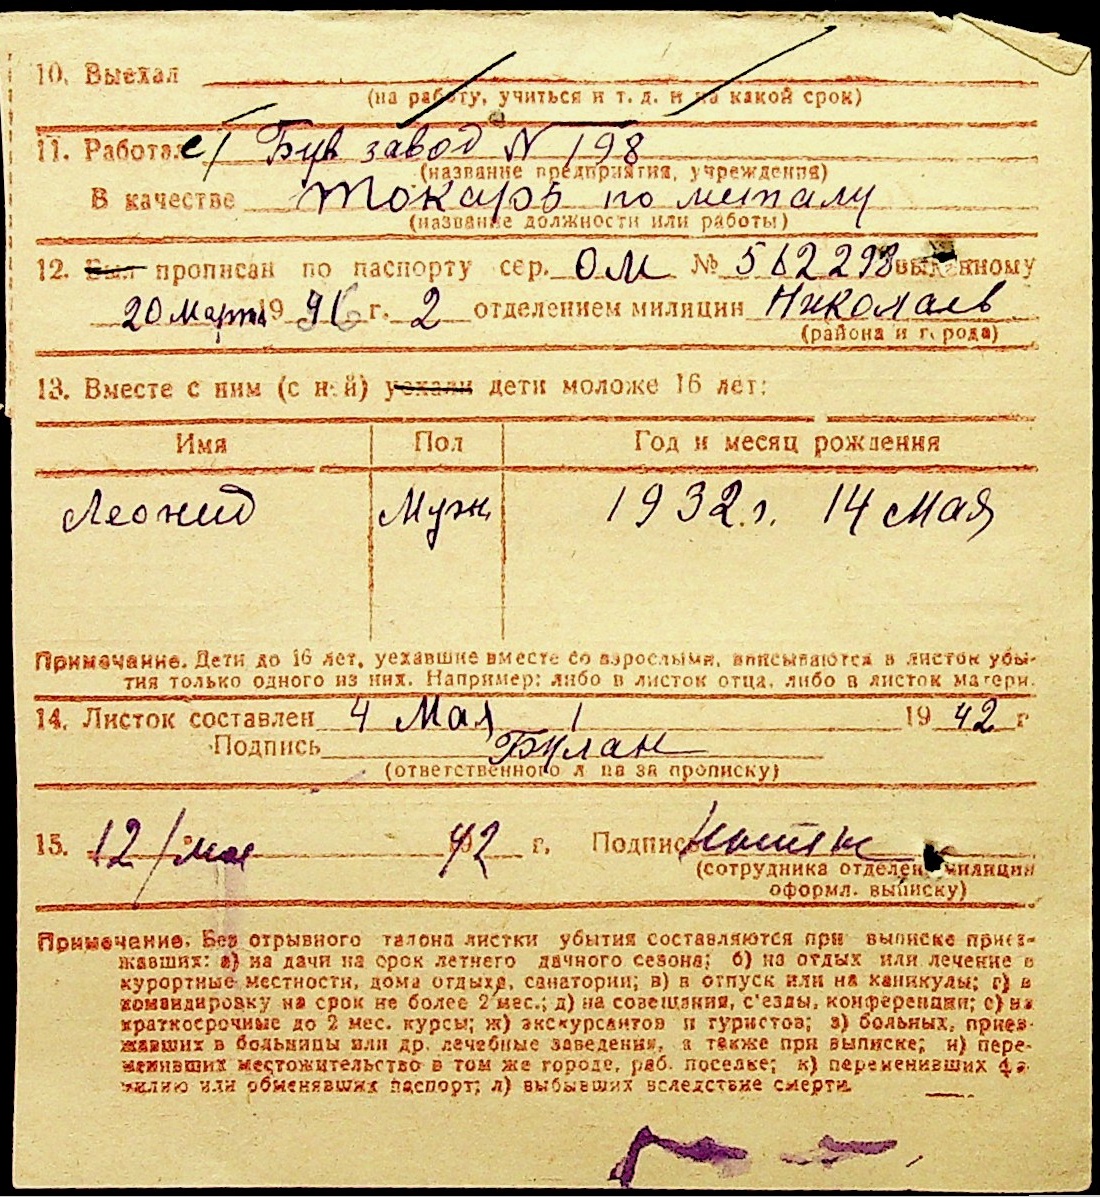 10. Выехал
(на работу, учиться и т. д. и на какой срок)
11. Работает Був завод N 198
(название предприятия, учреждения)
В качестве Токарь по металу
(название должности или работы)
12. Был прописан по паспорту сер. ОМ № 562293 выданному
20 Марта 1936 г. 2 отделением милиции Николаев
(района и города)
13. Вместе с ним (с ней) уехали дети моложе 16 лет:
Имя Пол Год и месяц рождения
Леонид Муж. 1932 г. 14 Мая
Примечание. Дети до 16 лет, уехавшие вместе со взрослыми, вписываются в листок убы-
тия только одного из них. Например: либо в листок отца, либо в листок матери.
14. Листок составлен 4 Мая 1942 г
Подпись Булан
(ответственного лица за прописку)
15. 12/мая 42 г. Подпись
(сотрудника отделен. милиции
оформл. выписку)
Примечание. Без отрывного талона листки убытия составляются при выписке приез-
жавших: а) на дачи на срок летнего дачного сезона; б) на отдых или лечение в
курортные местности, дома отдыха, санатории; в) в отпуск или на каникулы; г) в
командировку на срок не более 2 мес.; д) на совещания, с'езды, конференции; е) на
краткосрочные до 2 мес. курсы; ж) экскурсантов и туристов; з) больных, приез-
жавших в больницы или др. лечебные заведения, а также при выписке; и) пере-
менивших местожительство в том же городе, раб. поселке; к) переменивших фа-
милию или обменявших паспорт; л) выбывших вследствие смерти.